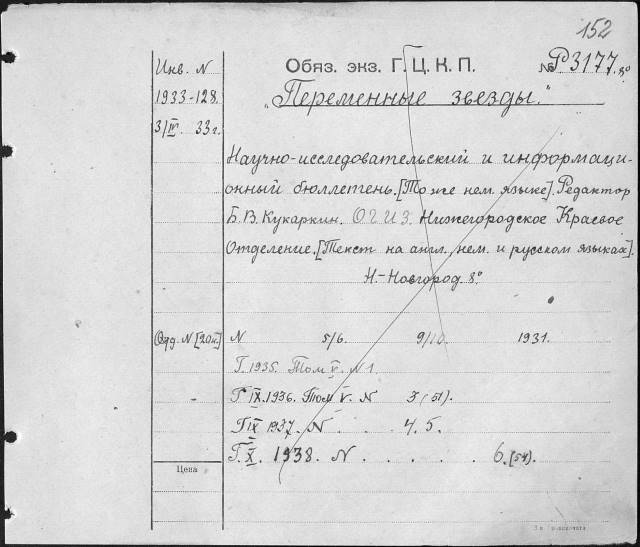 152
Инв. N
Обяз. экз. Г. Ц. К. П.
№ Р3177. 8°
1933-128.
„Переменные звезды."
3/IV. 33 г.
Научно-исследовательский и информаци-
онный бюллетень. [То же нем. языке]. Редактор
Б. В. Кукаркин. ОГИЗ. Нижегородское Краевое
Отделение. [Текст на англ., нем. и русском языках].
Н.-Новгород. 8°
N 5/6. 9/10. 1931.
Г. 1935. Том V. N 1.
Г IX. 1936. Том V. N 3 (51).
Г IX 1937. N . . . 4. 5.
Г. X. 1938. N . . . . . 6. [54].
Цена